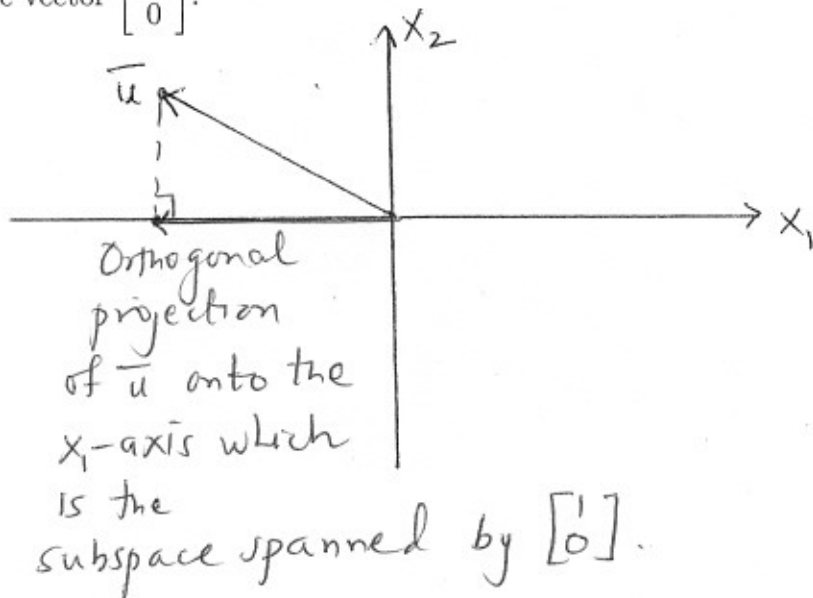 e vector [ 0 ].
X₂
ū
X₁
Orthogonal
projection
of ū onto the
X₁-axis which
is the
subspace spanned by [1 0].